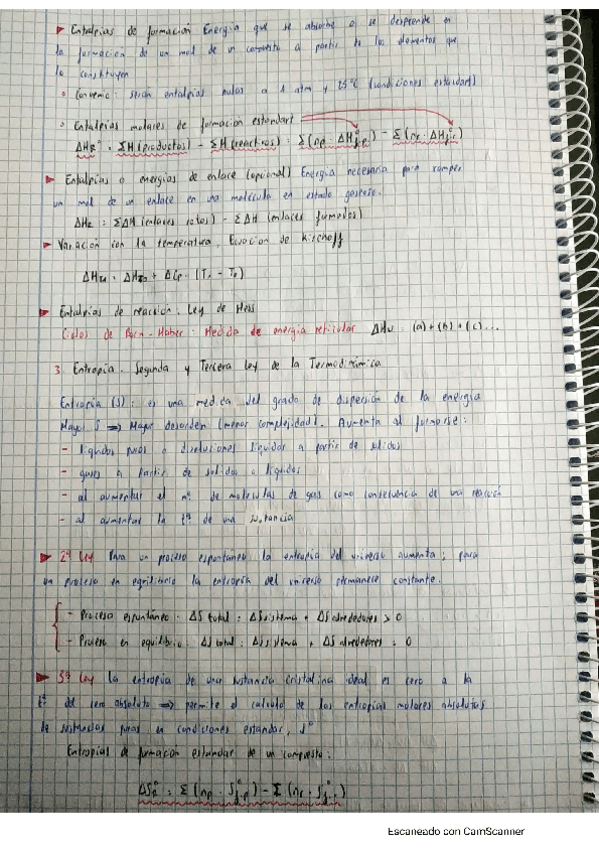 ▸ Entalpias de formación Energía que se absorbe o se desprende en
la formación de un mol de un compuesto a partir de los elementos que
lo constituyen
◦ Convenio: serán entalpias nulas a 1 atm y 25°C (condiciones estandart)
◦ Entalpias molares de formación estandart
ΔHR° = ΣH(productos) - ΣH(reactivos) = Σ(np · ΔHf,p°) - Σ(nr · ΔHf,r°)
▸ Entalpias o energias de enlace (opcional) Energía necesaria para romper
un mol de un enlace en una molécula en estado gaseoso.
ΔHR = ΣΔH (enlaces rotos) - ΣΔH (enlaces formados)
▸ Variación con la temperatura. Ecuacion de Kirchoff
▸ Entalpias de reacción. Ley de Hess
Ciclos de Born-Haber: Medida de energia reticular ΔHu = (a)+(b)+(c)...
3. Entropia. Segunda y Tercera Ley de la Termodinámica
Entropia (S): es una medida del grado de dispersión de la energia
Mayor S => Mayor desorden (menor complejidad). Aumenta al formarse:
- liquidos puros o disoluciones liquidas a partir de solidos
- gases a partir de solidos o liquidos
- al aumentar el nº de moleculas de gas como consecuencia de una reacción
- al aumentar la tª de una sustancia
▸ 2ª Ley Para un proceso espontaneo la entropia del universo aumenta; para
un proceso en equilibrio la entropia del universo permanece constante.
- Proceso espontaneo: ΔS total = ΔSsistema + ΔS alrededores > 0
- Proceso en equilibrio: ΔS total = ΔSsistema + ΔS alrededores = 0
▸ 3ª Ley La entropia de una sustancia cristalina ideal es cero a la
tª del cero absoluto => permite el calculo de las entropias molares absolutas
de sustancias puras en condiciones estandar, S°
Entropias de formación estandar de un compuesto:
ΔSR° = Σ(np · Sf,p°) - Σ(nr · Sf,r°)
Escaneado con CamScanner